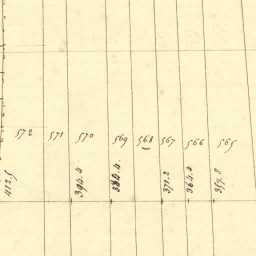 572 571 570 569 568 567 566 565
412.5 394.4 384.4 371.2 364.4 357.8